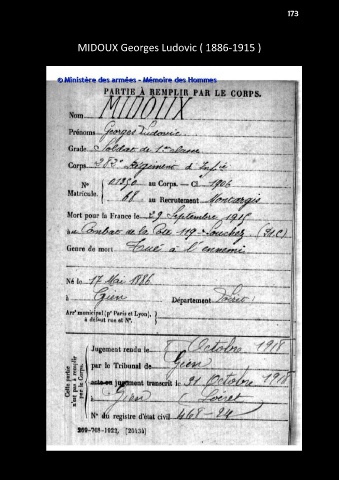 173
MIDOUX Georges Ludovic ( 1886-1915 )
© Ministère des armées - Mémoire des Hommes
PARTIE À REMPLIR PAR LE CORPS.
Nom MIDOUX
Prénoms Georges Ludovic
Grade Soldat de 1re classe
Corps 282e Régiment d'Infie
N° 01350 au Corps. — Cl 1906
Matricule. 68 au Recrutement Montargis
Mort pour la France le 29 Septembre 1915
à au Combat de la 119 Souchez
Genre de mort Tué à l'ennemi
Né le 17 Mai 1886
à Gien Département Loiret
Arrt municipal (pr Paris et Lyon),
à défaut rue et N°.
Cette partie n'est pas à remplir par le Corps.
Jugement rendu le Octobre 1918
par le Tribunal de Gien
acte ou jugement transcrit le 21 Octobre 1918
à Gien Loiret
N° du registre d'état civil 468-24
269-708-1922. [26434]